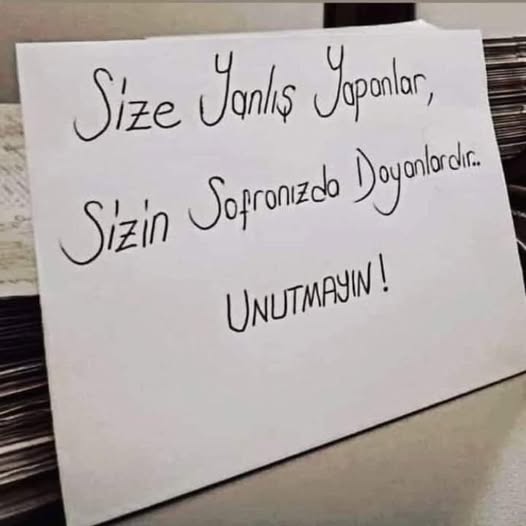 Size Yanlış Yapanlar,
Sizin Sofranızda Doyanlardır..
UNUTMAYIN!